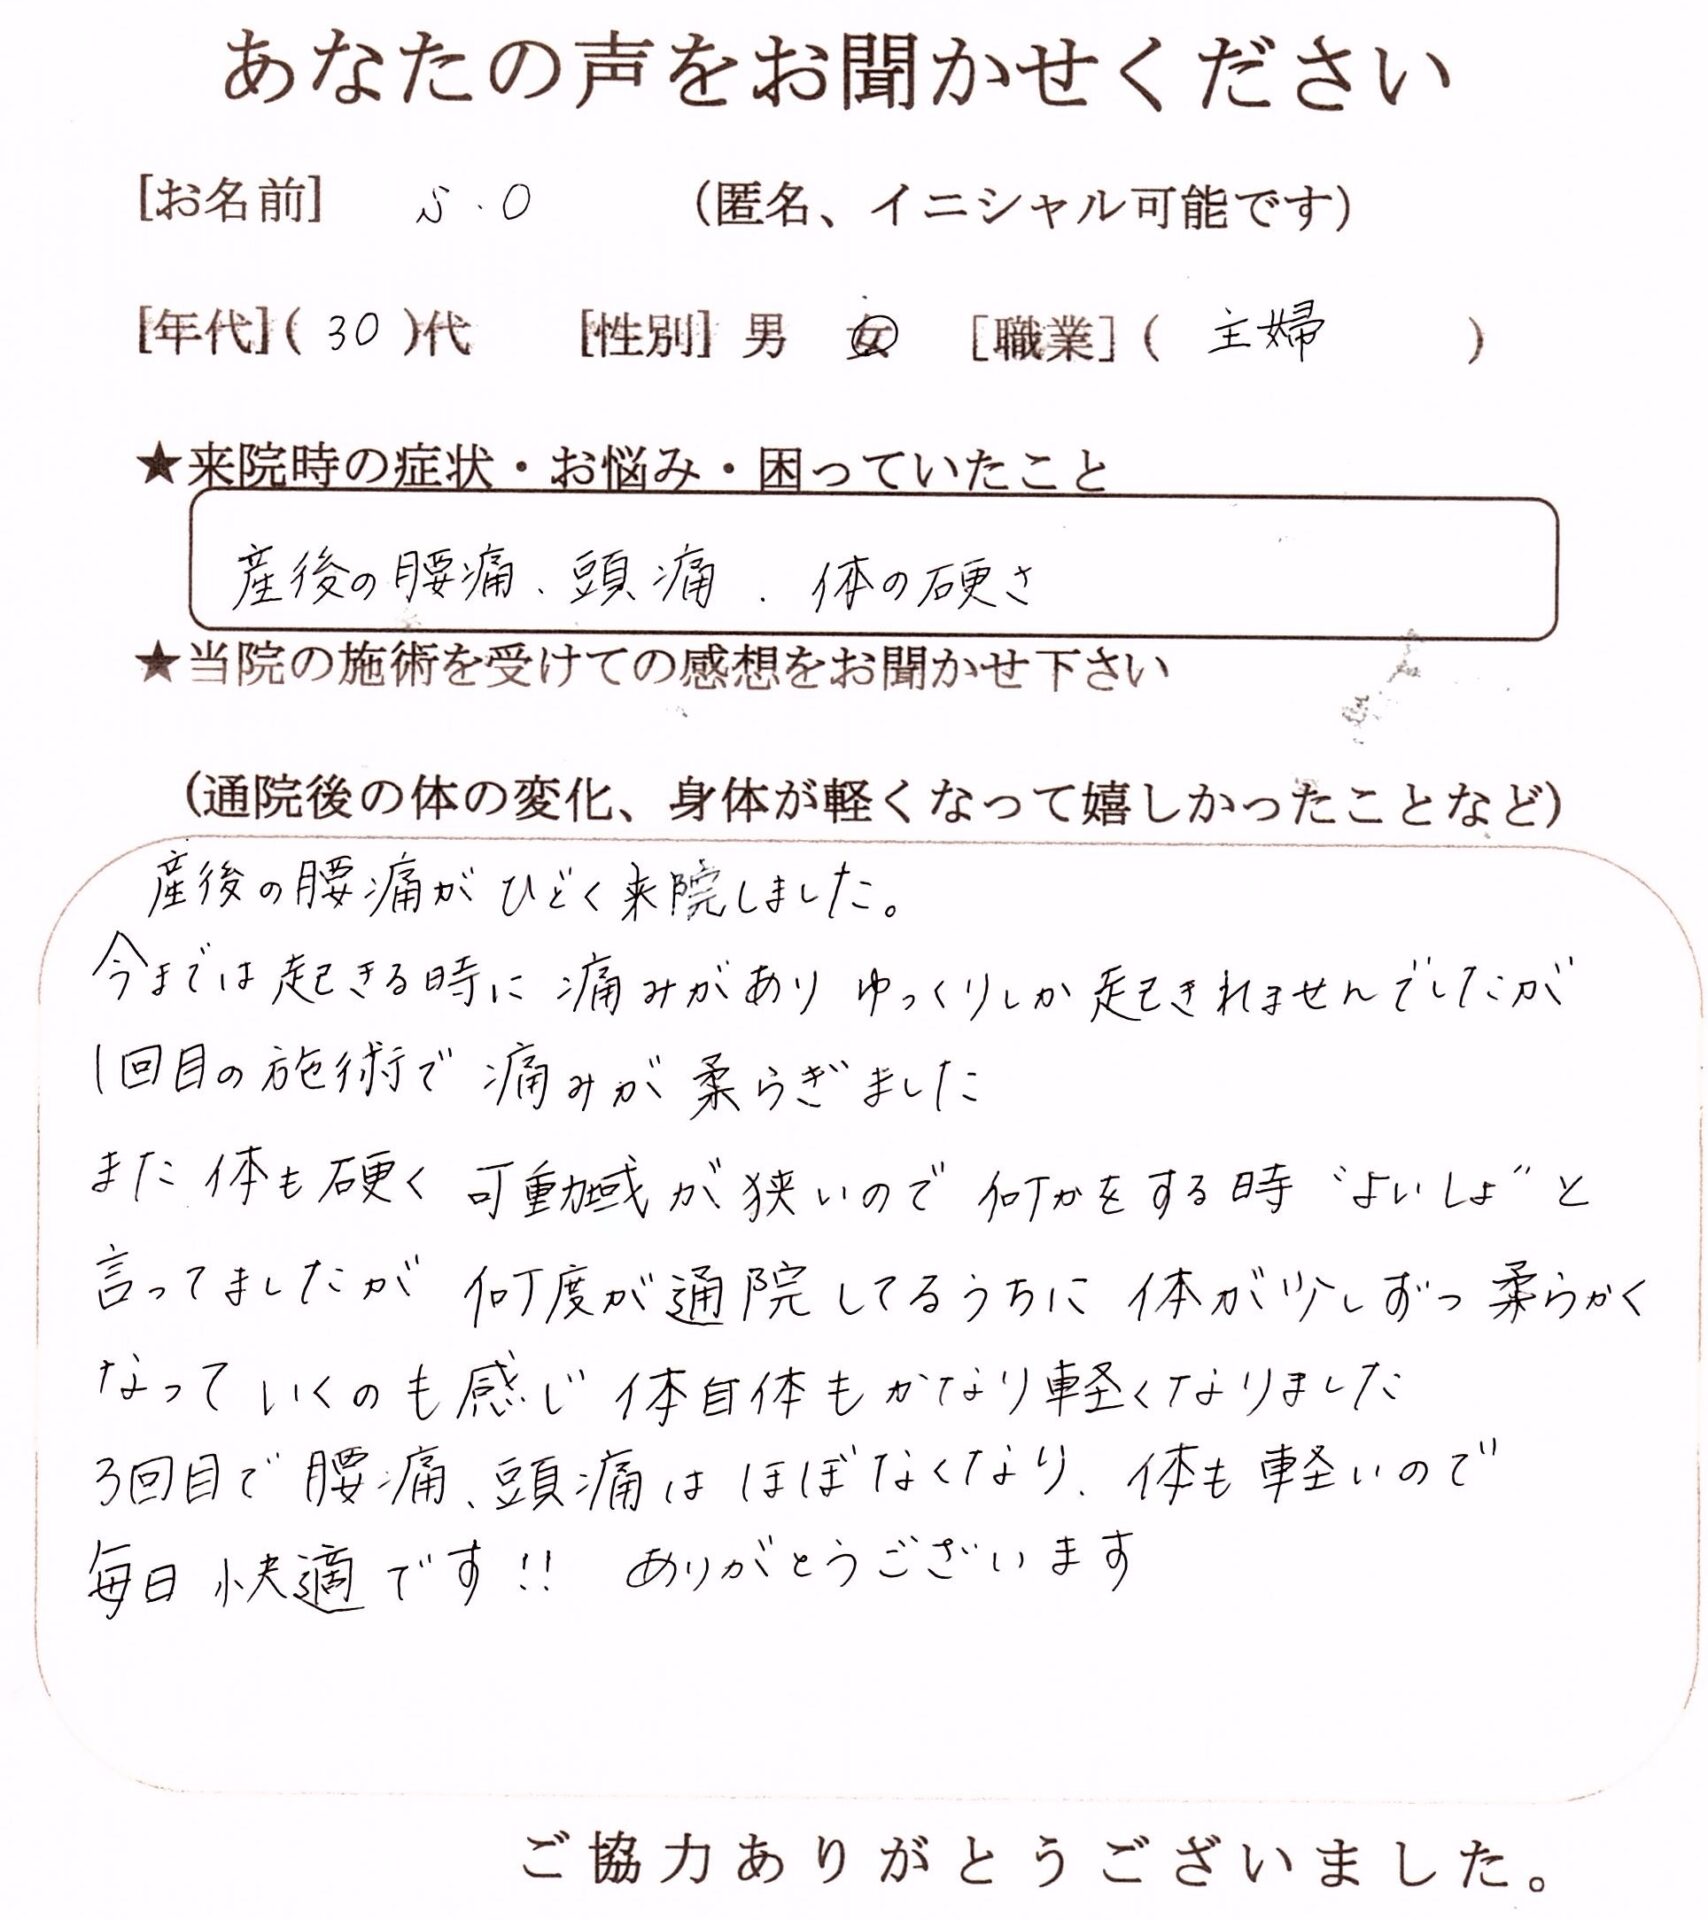 あなたの声をお聞かせください
[お名前] S.O (匿名、イニシャル可能です)
[年代](30)代 [性別] 男 女 [職業](主婦)
★来院時の症状・お悩み・困っていたこと
産後の腰痛、頭痛、体の硬さ
★当院の施術を受けての感想をお聞かせ下さい
(通院後の体の変化、身体が軽くなって嬉しかったことなど)
産後の腰痛がひどく来院しました。
今までは起きる時に痛みがありゆっくりしか起きれませんでしたが
1回目の施術で痛みが柔らぎました
また体も硬く可動域が狭いので何かをする時"よいしょ"と
言ってましたが何度が通院してるうちに体が少しずつ柔らかく
なっていくのも感じ体自体もかなり軽くなりました
3回目で腰痛、頭痛はほぼなくなり、体も軽いので
毎日快適です!! ありがとうございます
ご協力ありがとうございました。